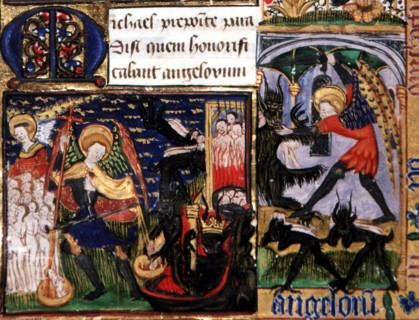 Michael preposite para
disi quem honorifi
cabant angelorum
angeloru